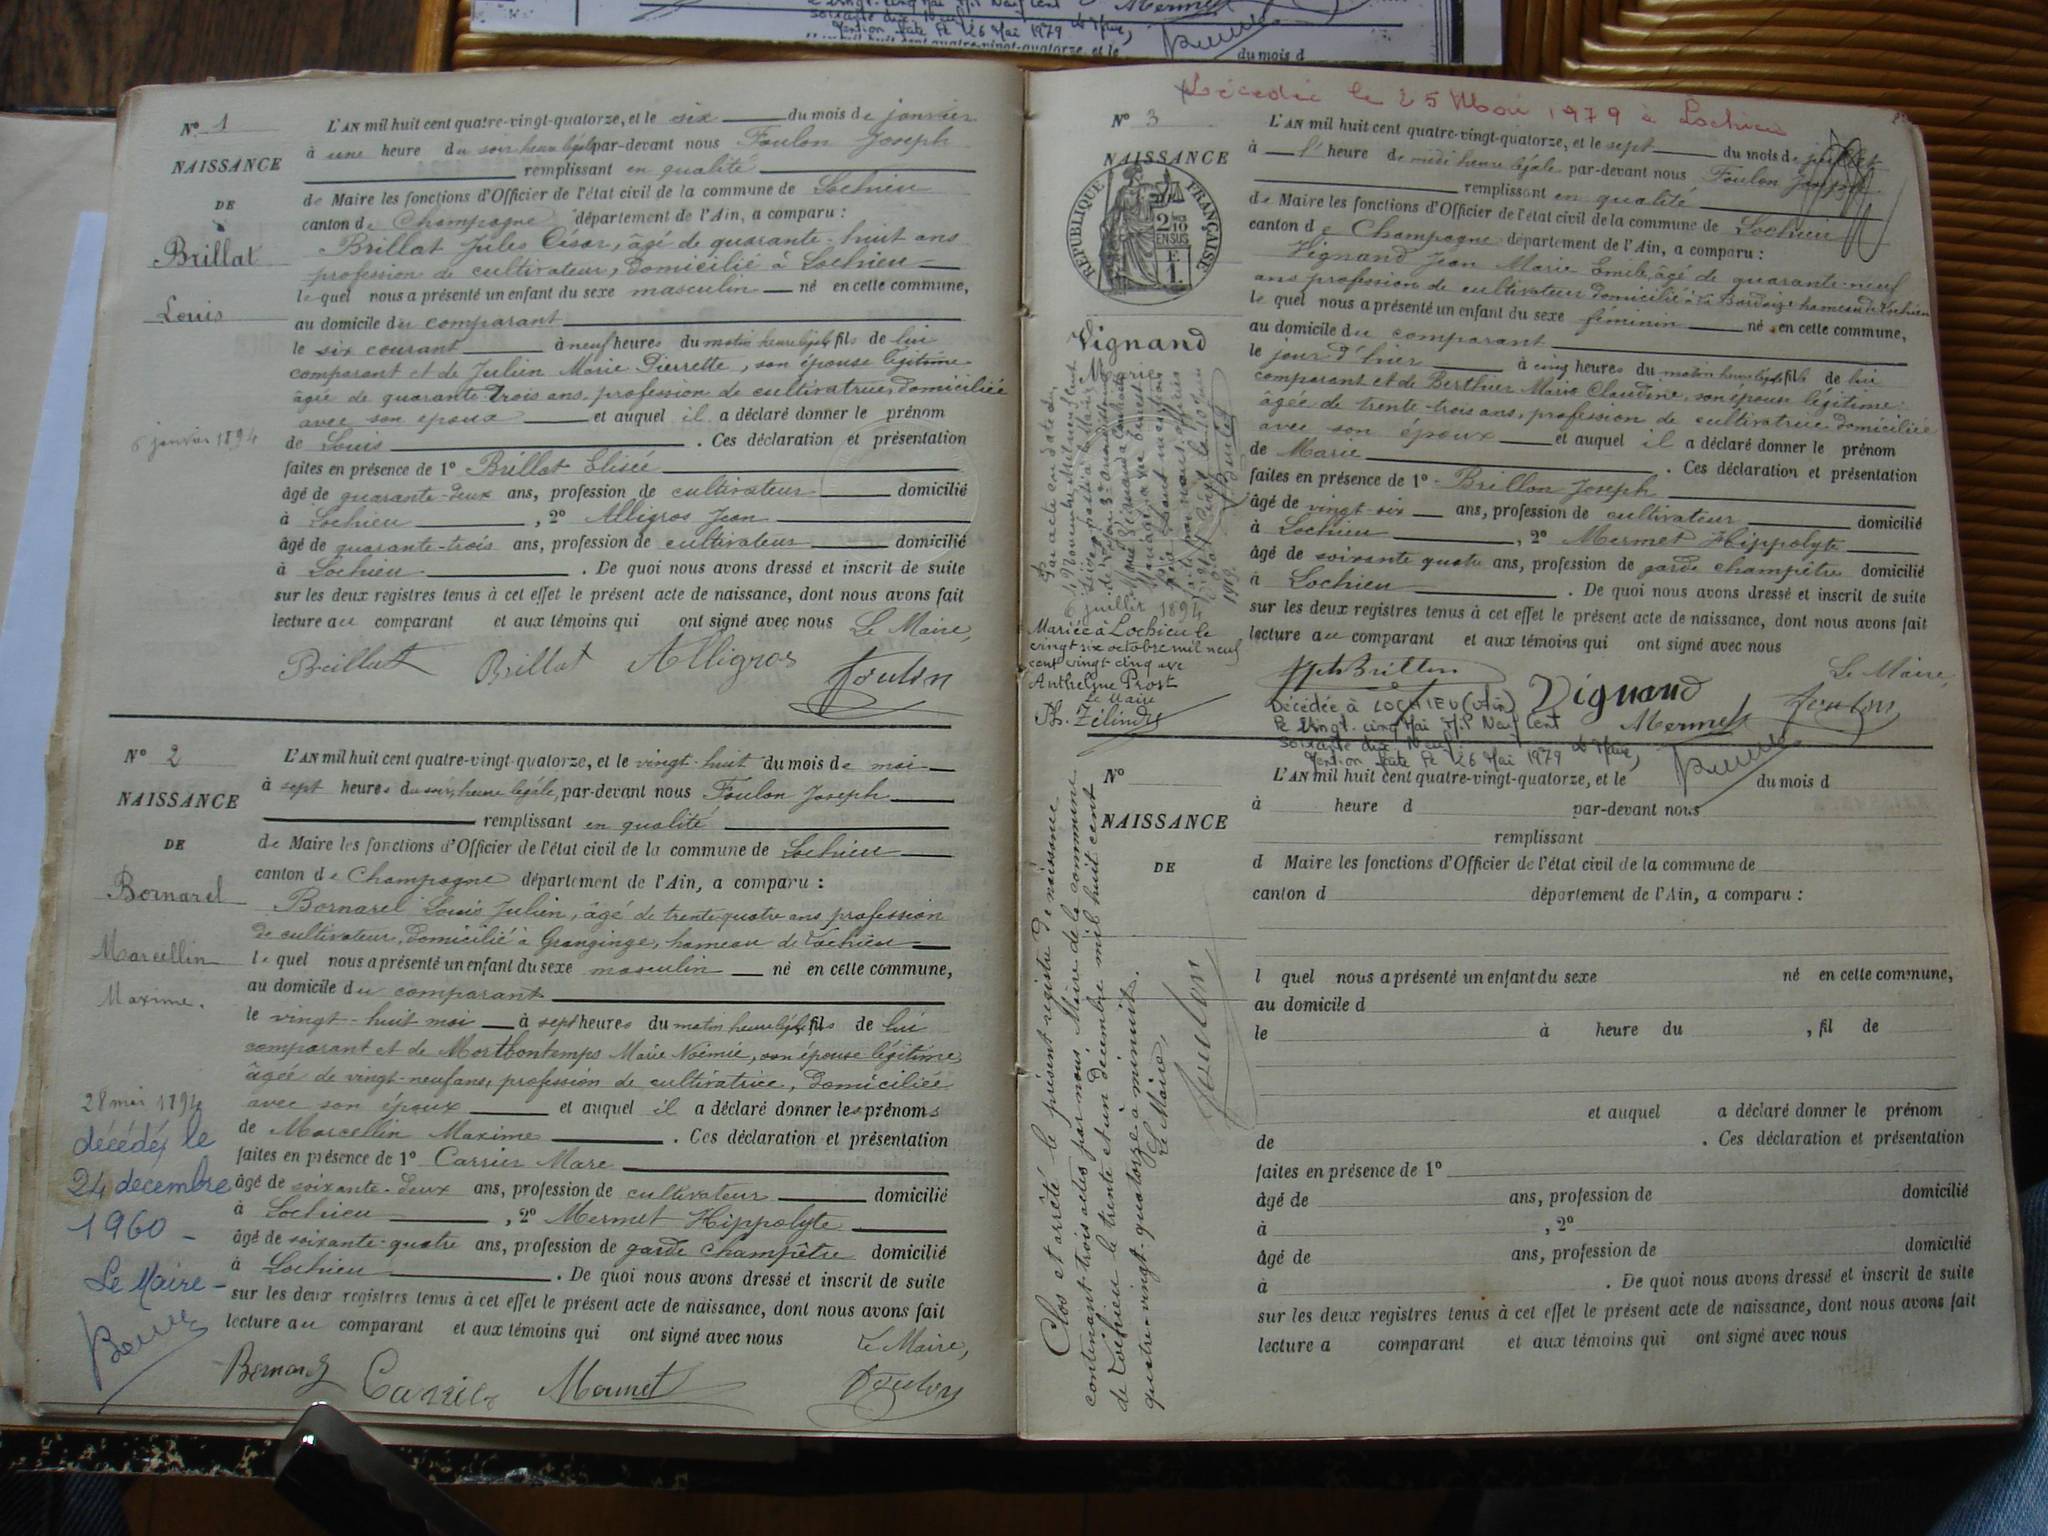 vingt-cinq Mai Mil Neuf Cent
soixante dix Neuf
Mention faite le 26 Mai 1979 Le Maire,
mil huit cent quatre-vingt-quatorze, et le
du mois d
N° 1
NAISSANCE
DE
Brillat
Louis
6 janvier 1894
L'AN mil huit cent quatre-vingt-quatorze, et le six du mois de janvier
à une heure du soir heure légale par-devant nous Foulon Joseph
remplissant en qualité
de Maire les fonctions d'Officier de l'état civil de la commune de Lochieu
canton de Champagne département de l'Ain, a comparu :
Brillat Jules César, âgé de quarante-huit ans
profession de cultivateur, domicilié à Lochieu
lequel nous a présenté un enfant du sexe masculin né en cette commune,
au domicile du comparant
le six courant à neuf heures du matin heure légale fils de lui
comparant et de Julien Marie Pierrette, son épouse légitime
âgée de quarante trois ans, profession de cultivatrice, domiciliée
avec son époux et auquel il a déclaré donner le prénom
de Louis . Ces déclaration et présentation
faites en présence de 1° Brillat Elisée
âgé de quarante-deux ans, profession de cultivateur domicilié
à Lochieu , 2° Alligros Jean
âgé de quarante-trois ans, profession de cultivateur domicilié
à Lochieu . De quoi nous avons dressé et inscrit de suite
sur les deux registres tenus à cet effet le présent acte de naissance, dont nous avons fait
lecture au comparant et aux témoins qui ont signé avec nous Le Maire,
Brillat Brillat Alligros Foulon
N° 2
NAISSANCE
DE
Bornarel
Marcellin
Maxime.
28 mai 1894
décédé le
24 decembre
1960 -
Le Maire -
L'AN mil huit cent quatre-vingt-quatorze, et le vingt-huit du mois de mai
à sept heures du soir, heure légale, par-devant nous Foulon Joseph
remplissant en qualité
de Maire les fonctions d'Officier de l'état civil de la commune de Lochieu
canton de Champagne département de l'Ain, a comparu :
Bornarel Louis Julien, âgé de trente-quatre ans profession
de cultivateur, domicilié à Granginge, hameau de Lochieu
lequel nous a présenté un enfant du sexe masculin né en cette commune,
au domicile du comparant
le vingt-huit mai à sept heures du matin heure légale, fils de lui
comparant et de Montbontemps Marie Noémie, son épouse légitime
âgée de vingt-neuf ans, profession de cultivatrice, domiciliée
avec son époux et auquel il a déclaré donner les prénoms
de Marcellin Maxime . Ces déclaration et présentation
faites en présence de 1° Carrier Marc
âgé de soixante-deux ans, profession de cultivateur domicilié
à Lochieu , 2° Mermet Hippolyte
âgé de soixante-quatre ans, profession de garde champêtre domicilié
à Lochieu . De quoi nous avons dressé et inscrit de suite
sur les deux registres tenus à cet effet le présent acte de naissance, dont nous avons fait
lecture au comparant et aux témoins qui ont signé avec nous
Le Maire,
Carrier Mermet Foulon
Décédée le 25 Mai 1979 à Lochieu
N° 3
NAISSANCE
RÉPUBLIQUE FRANÇAISE
2
10
EN SUS
Vignand
Marie
6 juillet 1894
Mariée à Lochieu le
vingt six octobre mil neuf
cent vingt cinq avec
Anthelme Prost
Le Maire
Ph. Zélindre
L'AN mil huit cent quatre-vingt-quatorze, et le sept du mois de juillet
à l' heure de midi heure légale par-devant nous Foulon Joseph
remplissant en qualité
de Maire les fonctions d'Officier de l'état civil de la commune de Lochieu
canton de Champagne département de l'Ain, a comparu :
Vignand Jean Marie Emile, âgé de quarante-neuf
ans profession de cultivateur domicilié à hameau de Lochieu
lequel nous a présenté un enfant du sexe féminin né en cette commune,
au domicile du comparant
le jour d'hier à cinq heures du matin heure légale fils de lui
comparant et de Berthier Marie Claudine, son épouse légitime
âgée de trente-trois ans, profession de cultivatrice domiciliée
avec son époux et auquel il a déclaré donner le prénom
de Marie . Ces déclaration et présentation
faites en présence de 1° Brillon Joseph
âgé de vingt-six ans, profession de cultivateur domicilié
à Lochieu , 2° Mermet Hippolyte
âgé de soixante quatre ans, profession de garde champêtre domicilié
à Lochieu . De quoi nous avons dressé et inscrit de suite
sur les deux registres tenus à cet effet le présent acte de naissance, dont nous avons fait
lecture au comparant et aux témoins qui ont signé avec nous
Le Maire,
Vignand Mermet Foulon
Décédée à LOCHIEU (Ain)
le vingt-cinq Mai Mil Neuf Cent
soixante dix Neuf.
Mention faite le 26 Mai 1979 Le Maire,
N°
NAISSANCE
DE
Clos et arrêté le présent registre de naissance
contenant trois actes par nous Maire de la commune
de Lochieu le trente et un décembre mil huit cent
quatre-vingt-quatorze à minuit.
Le Maire,
Foulon
L'AN mil huit cent quatre-vingt-quatorze, et le du mois d
à heure d par-devant nous
remplissant
d Maire les fonctions d'Officier de l'état civil de la commune de
canton d département de l'Ain, a comparu :
l quel nous a présenté un enfant du sexe né en cette commune,
au domicile d
le à heure du , fil de
et auquel a déclaré donner le prénom
de . Ces déclaration et présentation
faites en présence de 1°
âgé de ans, profession de domicilié
à , 2°
âgé de ans, profession de domicilié
à . De quoi nous avons dressé et inscrit de suite
sur les deux registres tenus à cet effet le présent acte de naissance, dont nous avons fait
lecture a comparant et aux témoins qui ont signé avec nous